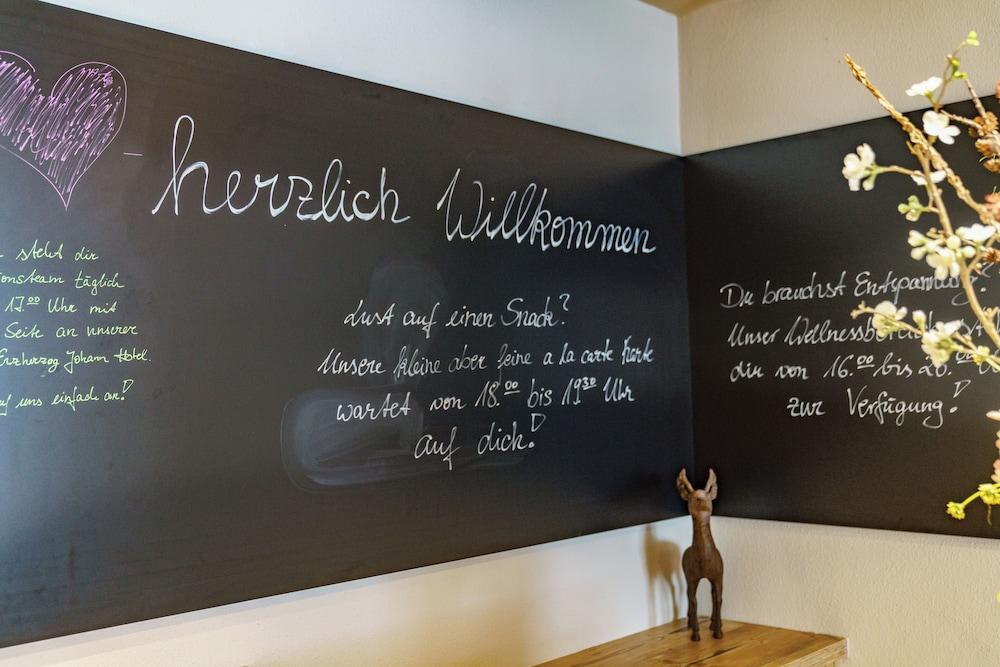 herzlich Willkommen
steht dir
team täglich
17.00 Uhr mit
Seite an unserer
Erzherzog Johann Hotel.
uns einfach an!
Lust auf einen Snack?
Unsere kleine aber feine a la carte Karte
wartet von 18.00 bis 19.30 Uhr
auf dich!
Du brauchst Entspannung?
Unser Wellnessbereich
dir von 16.00 bis 20.00
zur Verfügung!